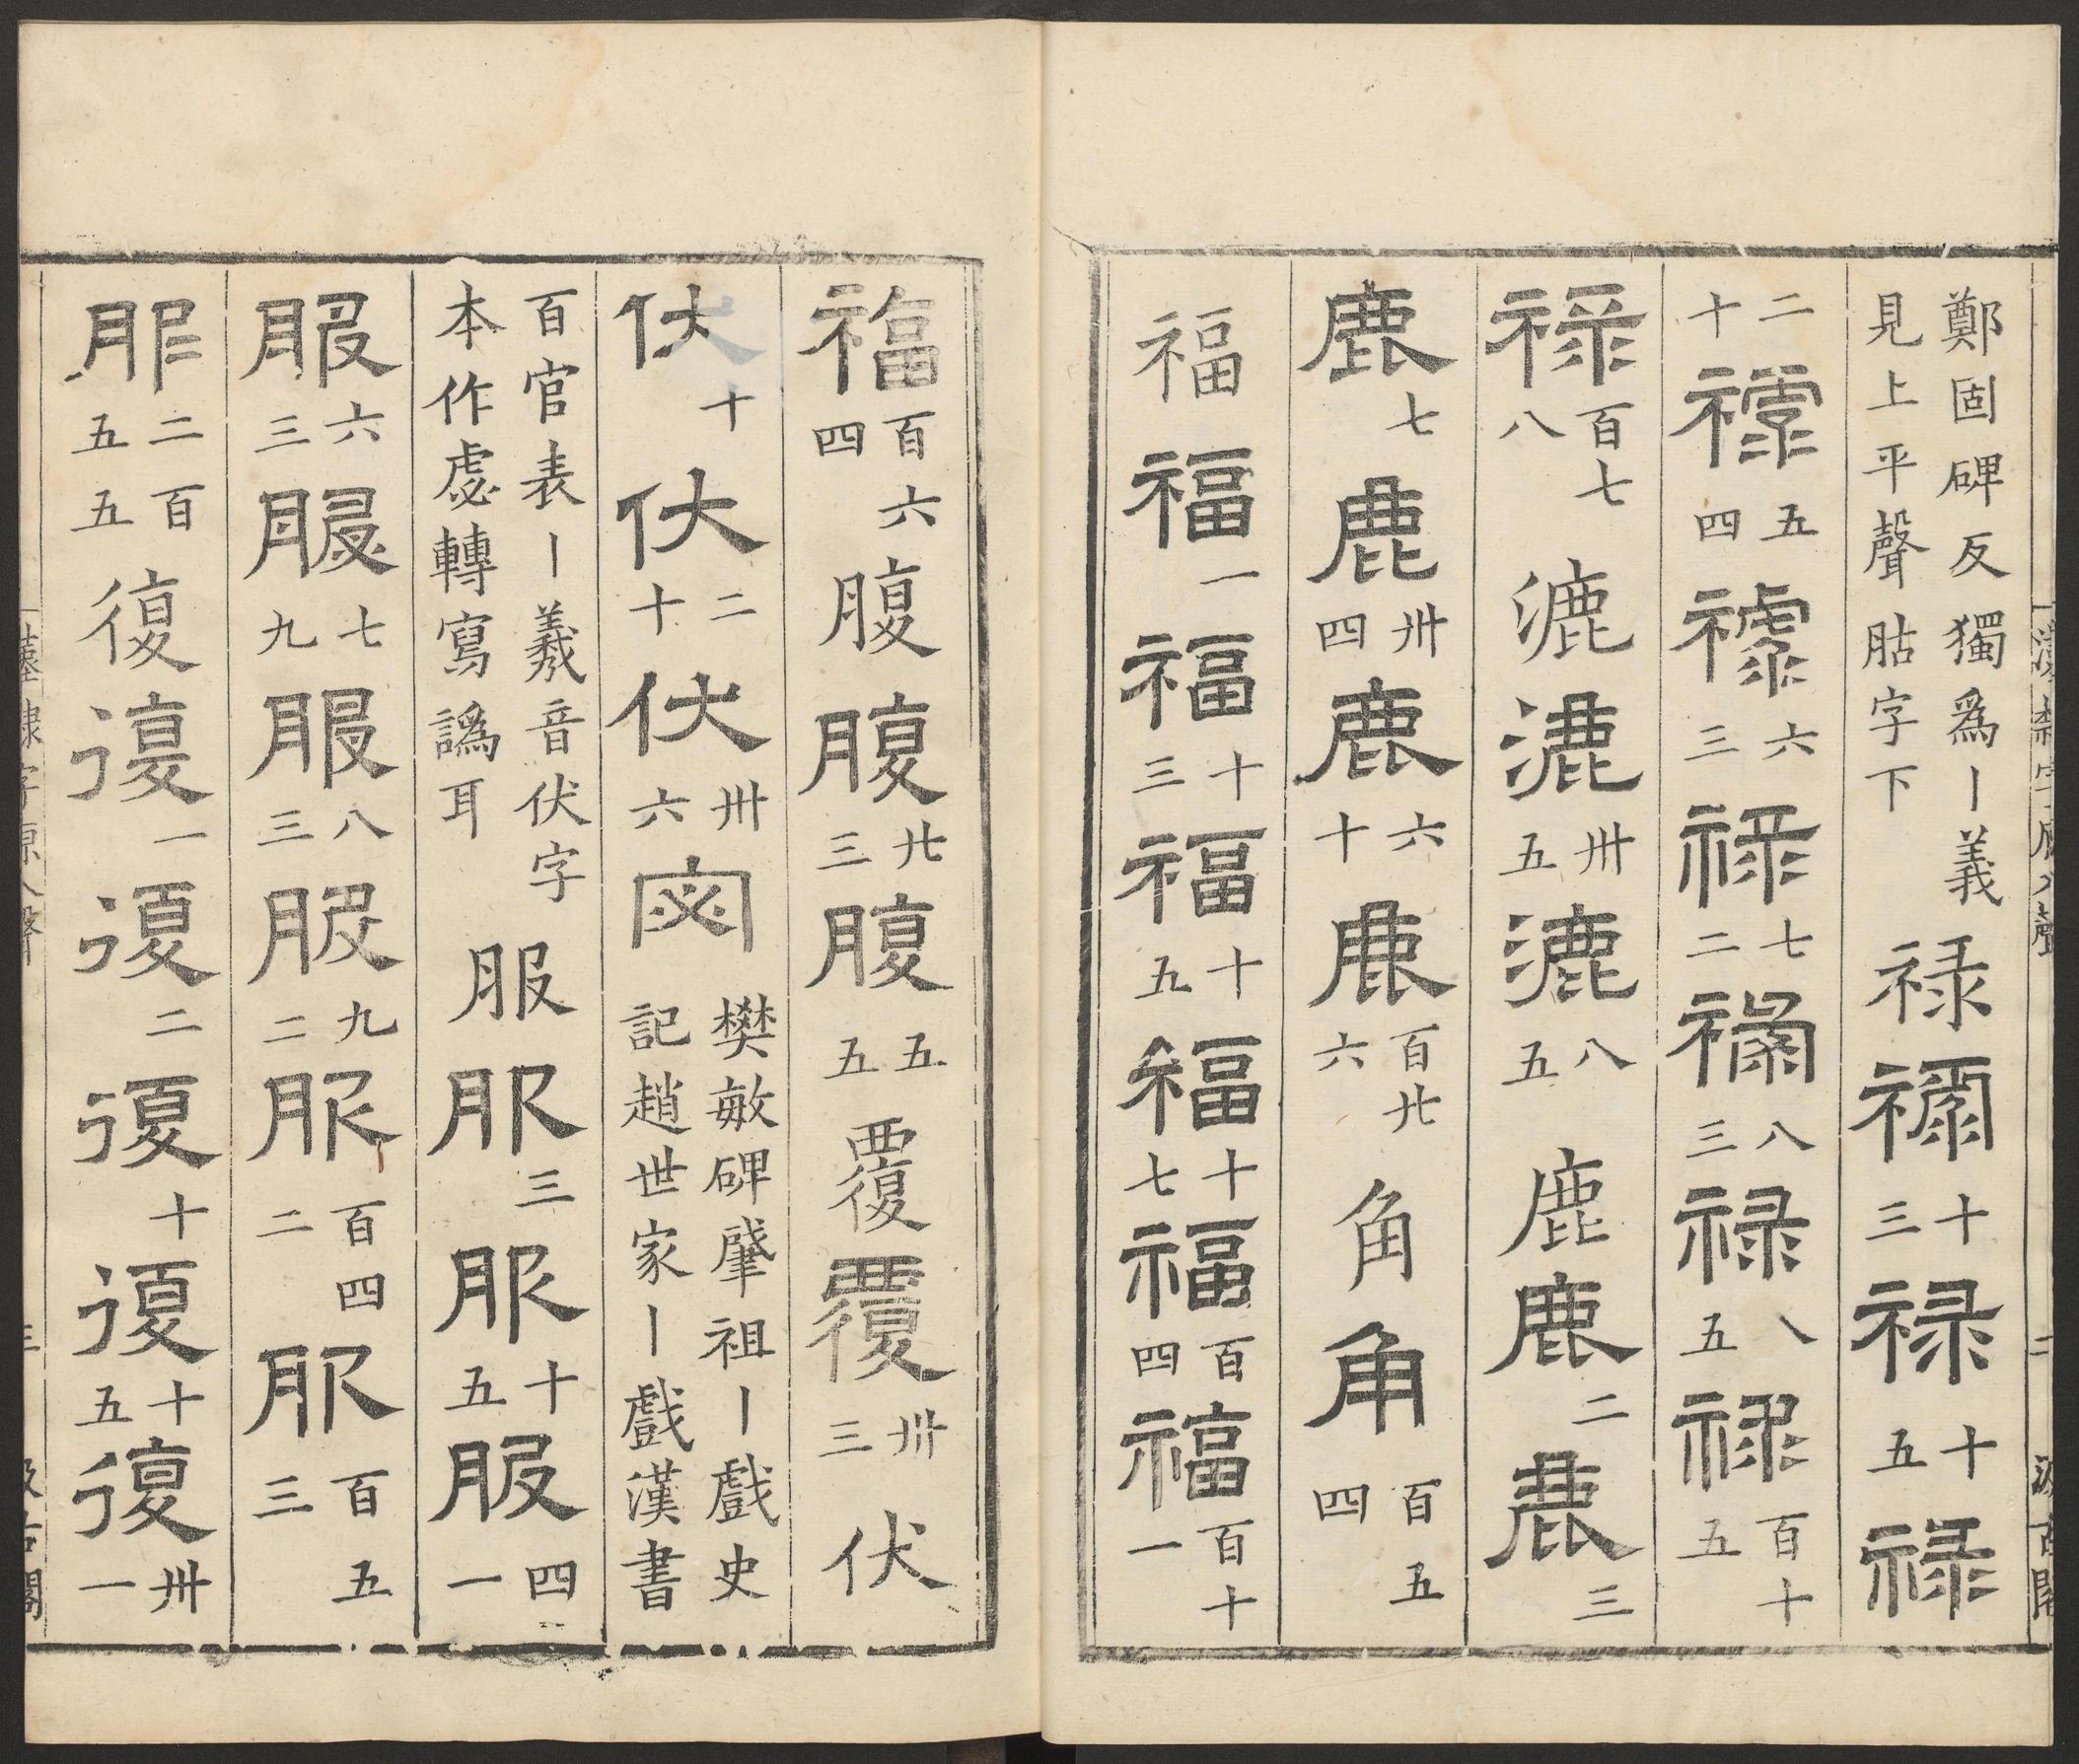 鄭固碑反獨爲丨義
見上平聲肱字下
祿祿十三祿十五祿
二十祿五四祿六三祿七二祿八三祿八五祿百十五
祿百七八漉漉卅五漉八五鹿鹿二鹿三
鹿七鹿卅四鹿六十鹿百廿六角角百五四
福福一福十三福十五福十七福百四福百十一
福百六四腹腹廿三腹五五覆覆卅三伏
伏十伏二十伏卅六宓
樊敏碑肇祖丨戲史
記趙世家丨戲漢書
百官表丨羲音伏字
本作虙轉寫譌耳
服服三服十五服四一
服六三服七九服八三服九二服百四二服百五三
服二百五五復復一復二復十復十五復卅一
漢隸字原入聲
三
汲古閣